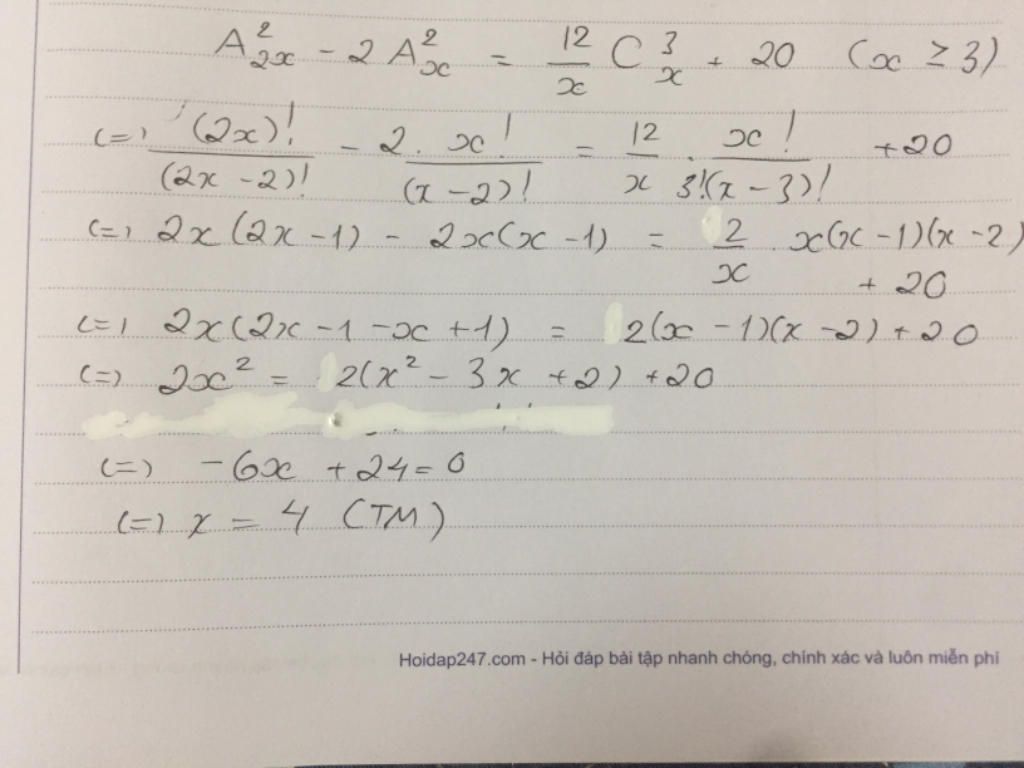 A²₂ₓ - 2A²ₓ = 12/x C³ₓ + 20 (x ≥ 3)
(=) (2x)!/(2x-2)! - 2. x!/(x-2)! = 12/x . x!/3!(x-3)! +20
(=) 2x(2x-1) - 2x(x-1) = 2/x . x(x-1)(x-2)
+ 20
(=) 2x(2x-1-x+1) = 2(x-1)(x-2)+20
(=) 2x² = 2(x² - 3x + 2) +20
(=) -6x + 24 = 0
(=) x = 4 (TM)
Hoidap247.com - Hỏi đáp bài tập nhanh chóng, chính xác và luôn miễn phí